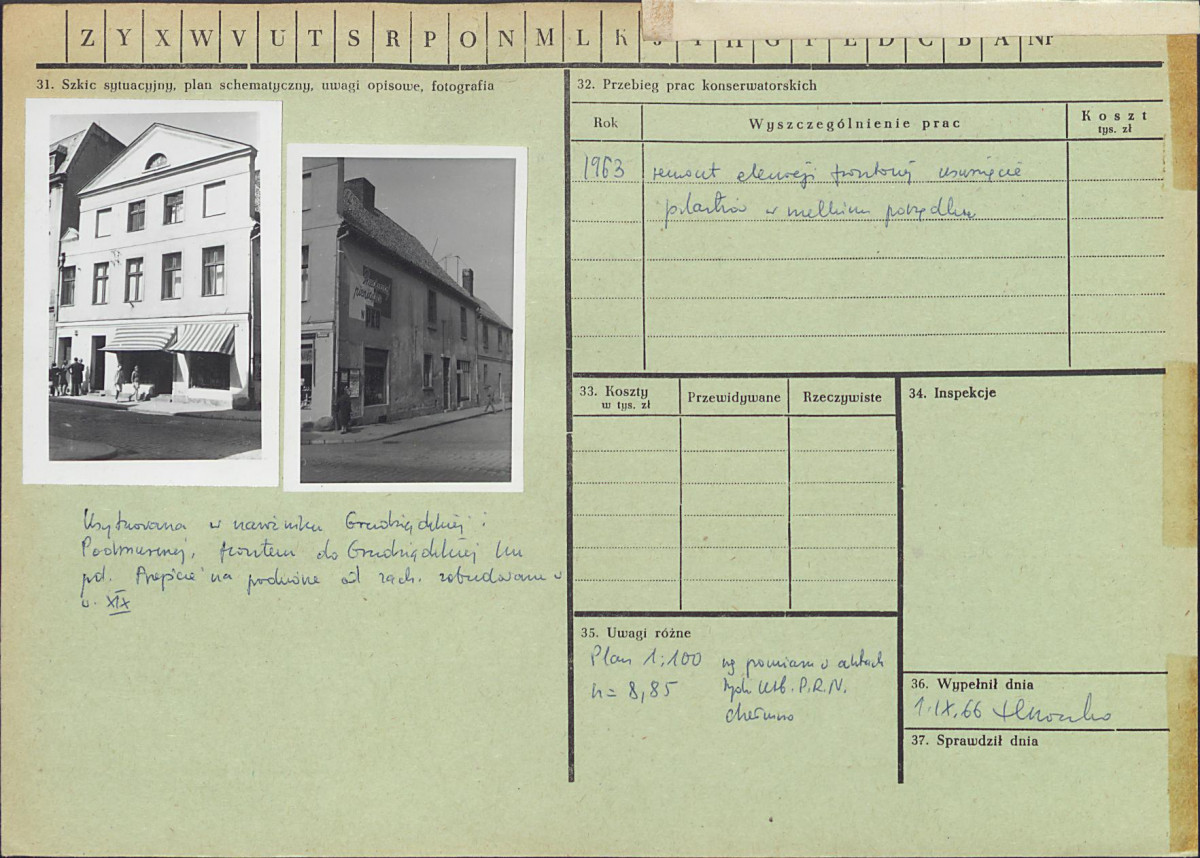 Z Y X W V U T S R P O N M L K J I H G F E D C B A Nr
31. Szkic sytuacyjny, plan schematyczny, uwagi opisowe, fotografia
Usytuowana w narożniku Grudziądzkiej i
Podmurnej, frontem do Grudziądzkiej ku
pd. na podwórze od zach. zabudowane w
w. XIX
32. Przebieg prac konserwatorskich
Rok Wyszczególnienie prac Koszt
tys. zł
1963 remont elewacji frontowej usunięcie
pilastrów w wielkim porządku
33. Koszty
w tys. zł
Przewidywane Rzeczywiste
34. Inspekcje
35. Uwagi różne
Plan 1:100 wg pomiaru w aktach
h = 8,85 Urb. P.R.N.
Chełmno
36. Wypełnił dnia
1.IX.66
37. Sprawdził dnia